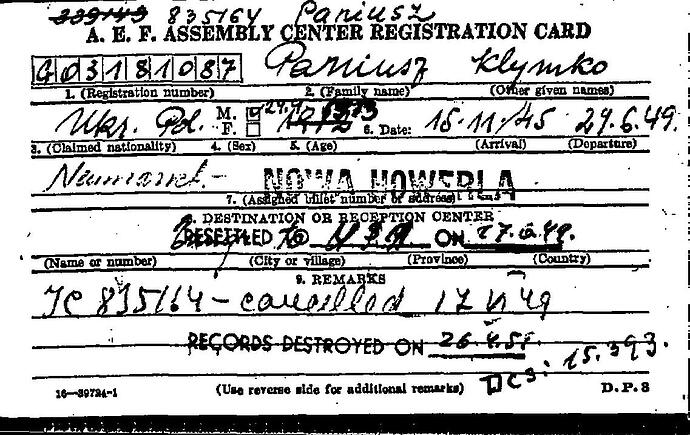 339149 835164 Pariusz
A. E. F. ASSEMBLY CENTER REGISTRATION CARD
G03181087 Pariusz Klymko
1. (Registration number) 2. (Family name) (Other given names)
Ukr. Pol. M. F. 1912 15.11/45 29.6.49.
3. (Claimed nationality) 4. (Sex) 5. (Age) 6. Date: (Arrival) (Departure)
Neumarkt.- NOWA HOWERLA
7. (Assigned billet number or address)
8. DESTINATION OR RECEPTION CENTER
RESETTLED TO USA ON
(Name or number) (City or village) (Province) (Country)
9. REMARKS
TC 835164 - cancelled 17 VI 49
RECORDS DESTROYED ON
DCS: 15.393.
16—39724-1 (Use reverse side for additional remarks) D.P. 3